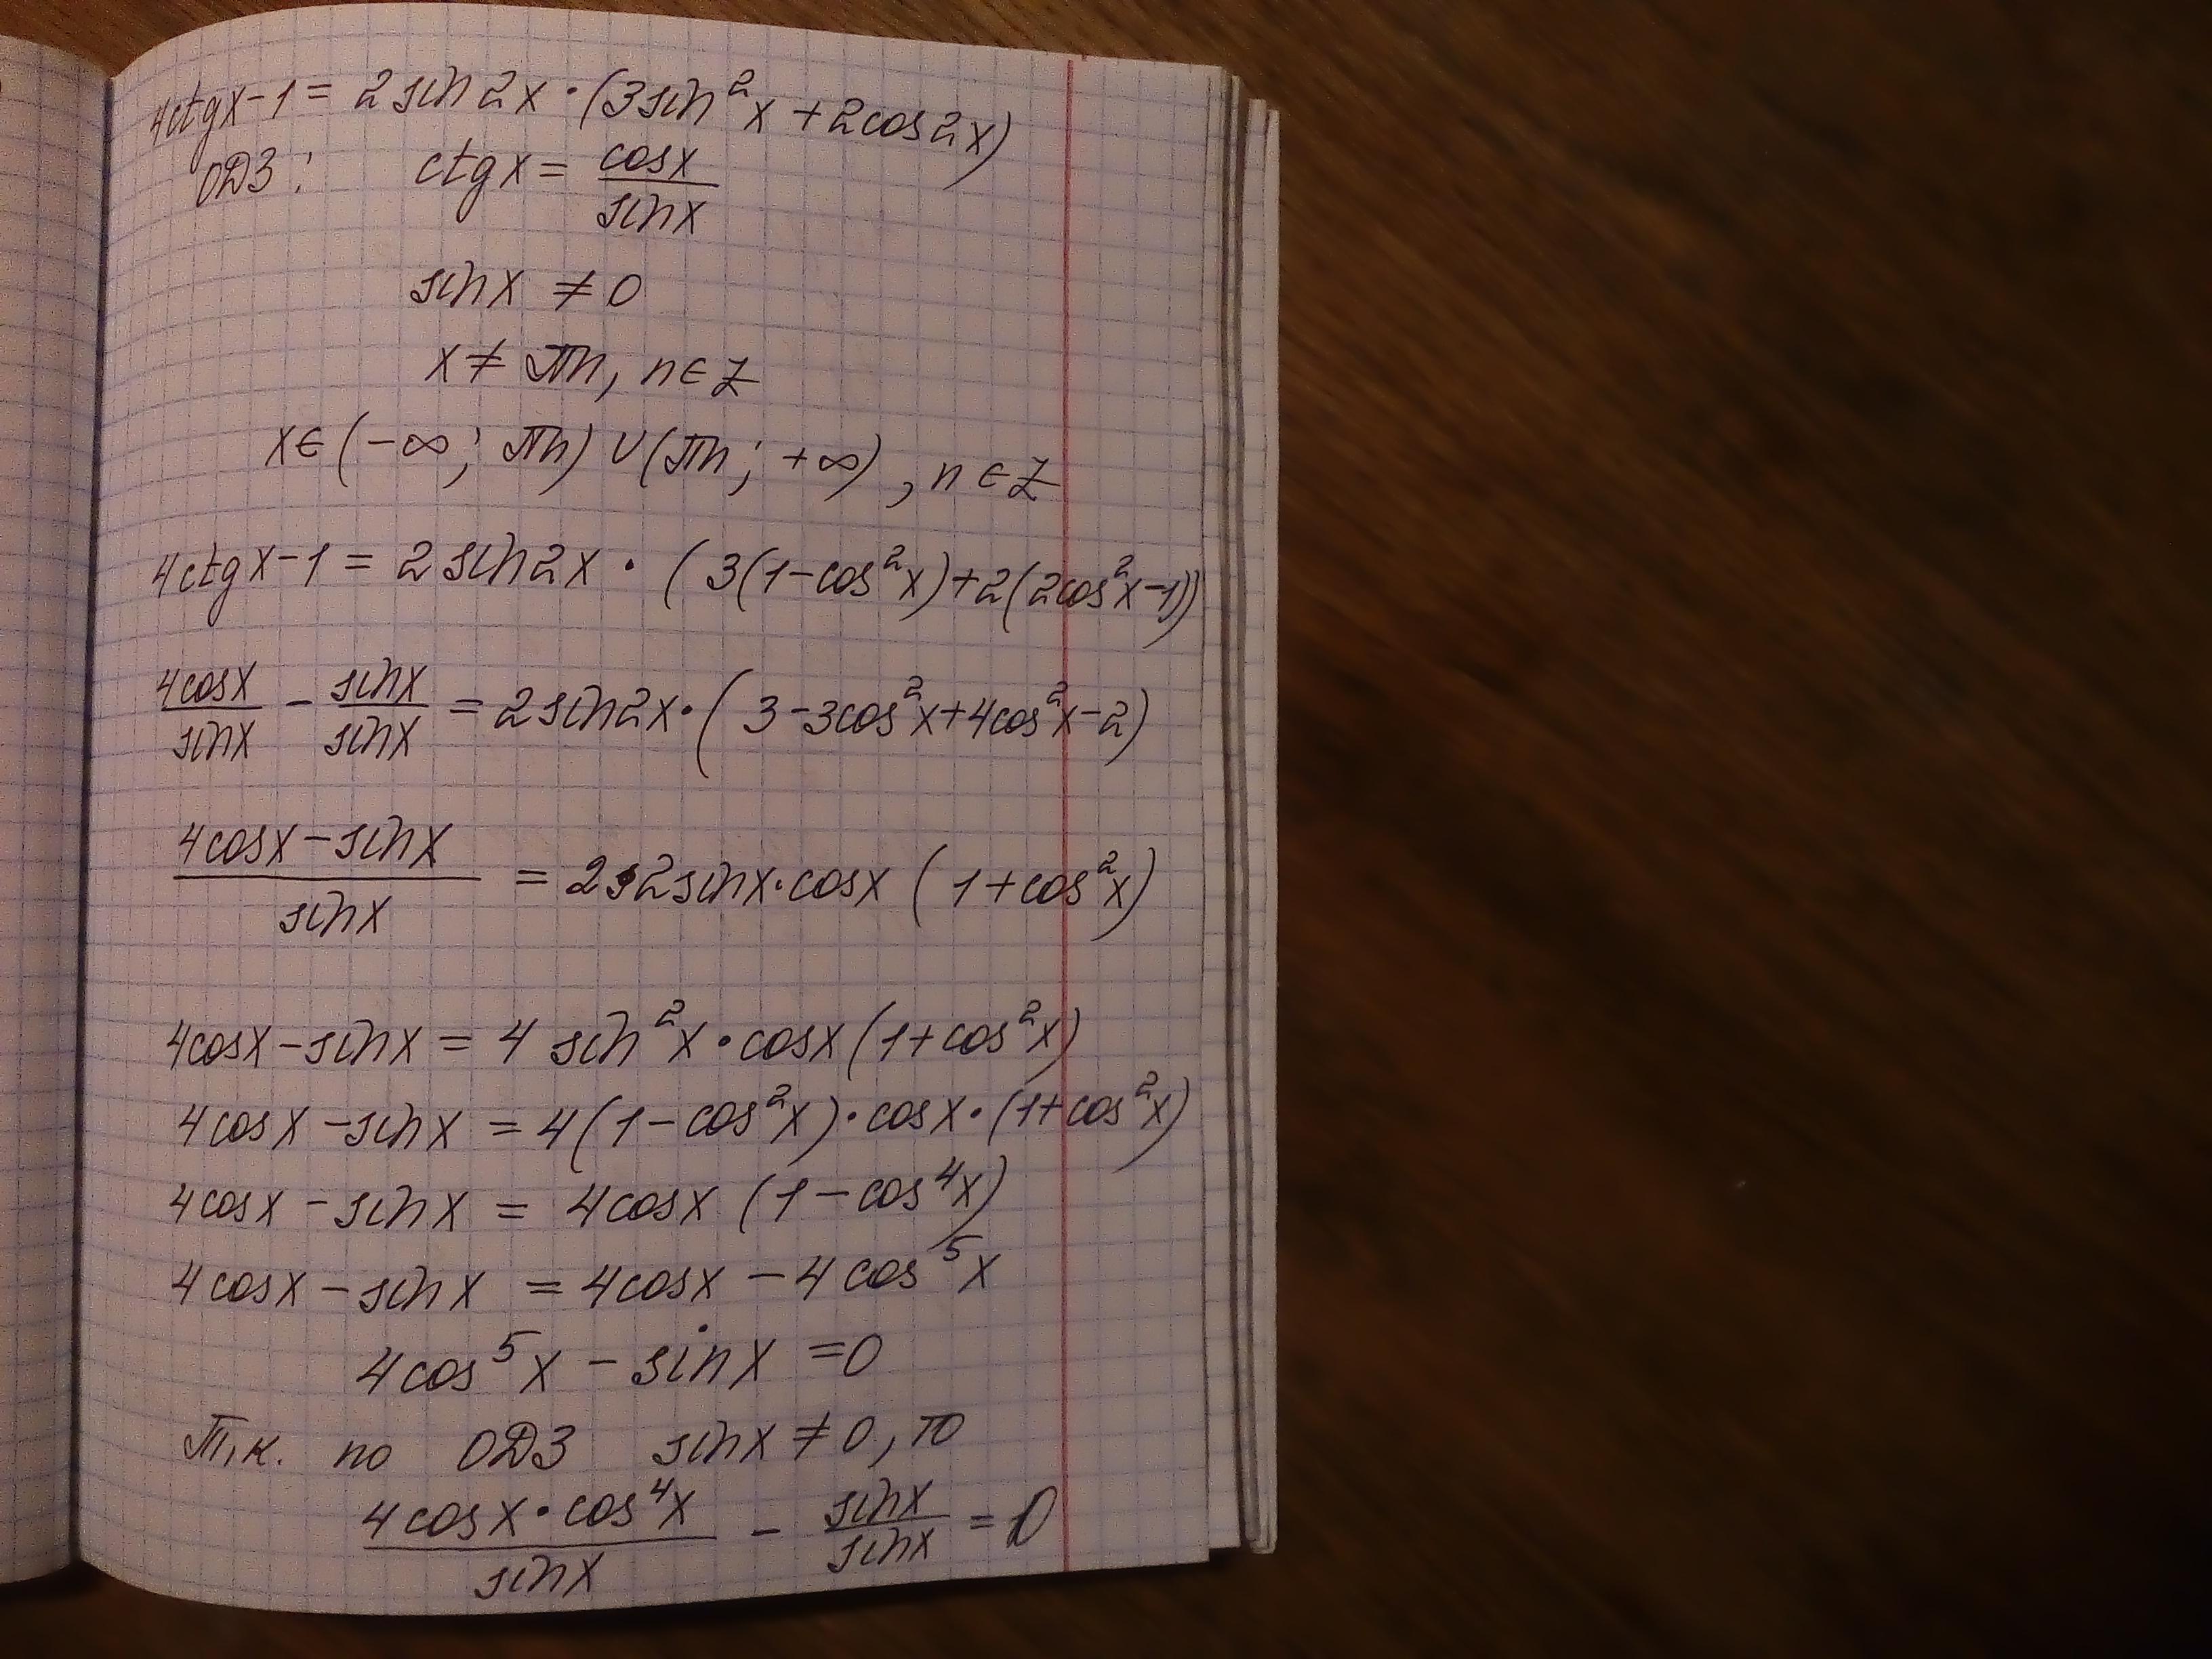 4ctgx-1 = 2sin2x·(3sin²x+2cos2x)
ОДЗ: ctgx = cosx/sinx
sinx ≠ 0
x ≠ πn, n∈Z
x∈(-∞; πn)∪(πn; +∞), n∈Z
4ctgx-1 = 2sin2x·(3(1-cos²x)+2(2cos²x-1))
4cosx/sinx - sinx/sinx = 2sin2x·(3-3cos²x+4cos²x-2)
(4cosx-sinx)/sinx = 2·2sinx·cosx(1+cos²x)
4cosx-sinx = 4sin²x·cosx(1+cos²x)
4cosx-sinx = 4(1-cos²x)·cosx·(1+cos²x)
4cosx-sinx = 4cosx(1-cos⁴x)
4cosx-sinx = 4cosx-4cos⁵x
4cos⁵x-sinx = 0
Т.к. по ОДЗ sinx ≠ 0, то
4cosx·cos⁴x/sinx - sinx/sinx = 0